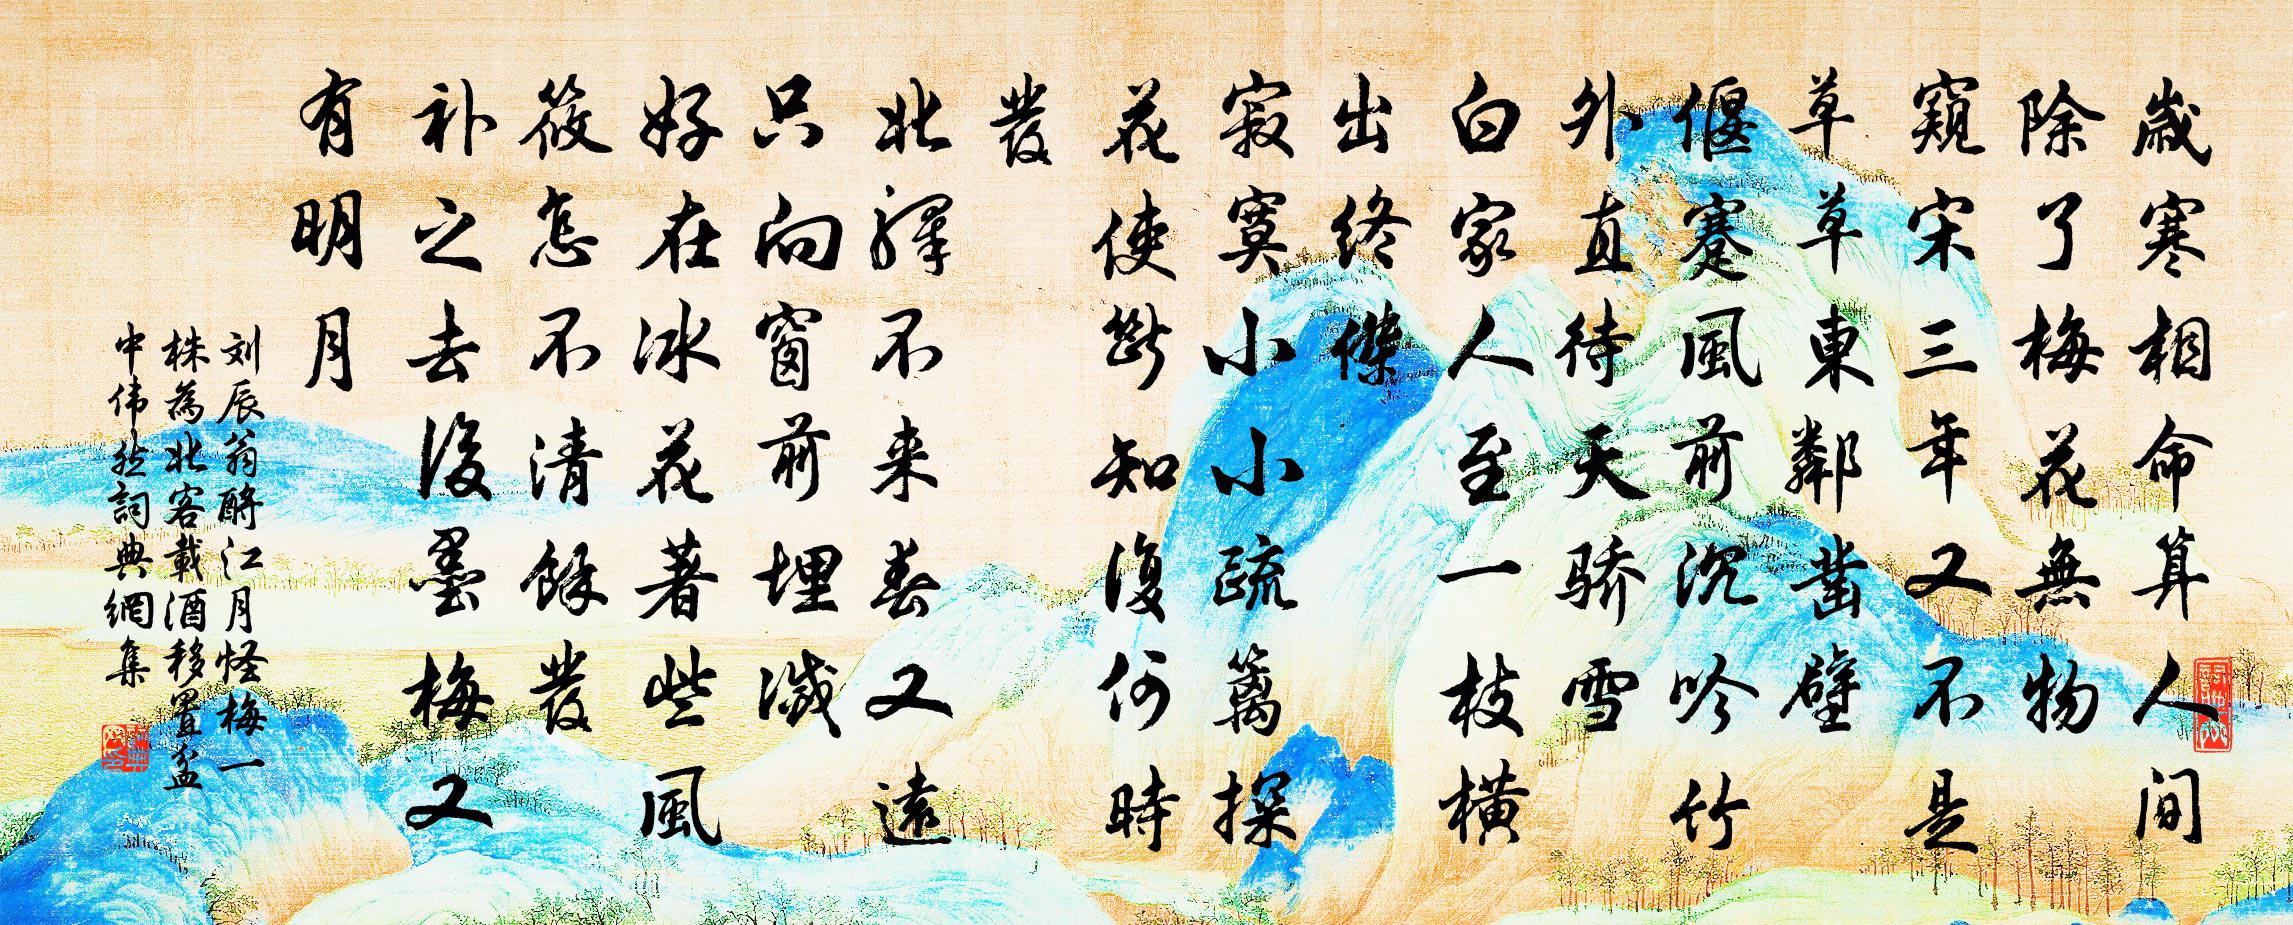 歲寒相命算人間
除了梅花無物
窺宋三年又不是
草草東鄰凿壁
偃蹇風前沉吟竹
外直待天骄雪
白家人至一枝橫
出終傑
寂寞小小疏篱探
花使斷知復何時
發
北驛不来春又遠
只向窗前埋減
好在冰花著些風
筱怎不清餘發
补之去後墨梅又
有明月
刘辰翁酹江月怪梅一
株為北客載酒移置盆
中伟然詞典網集